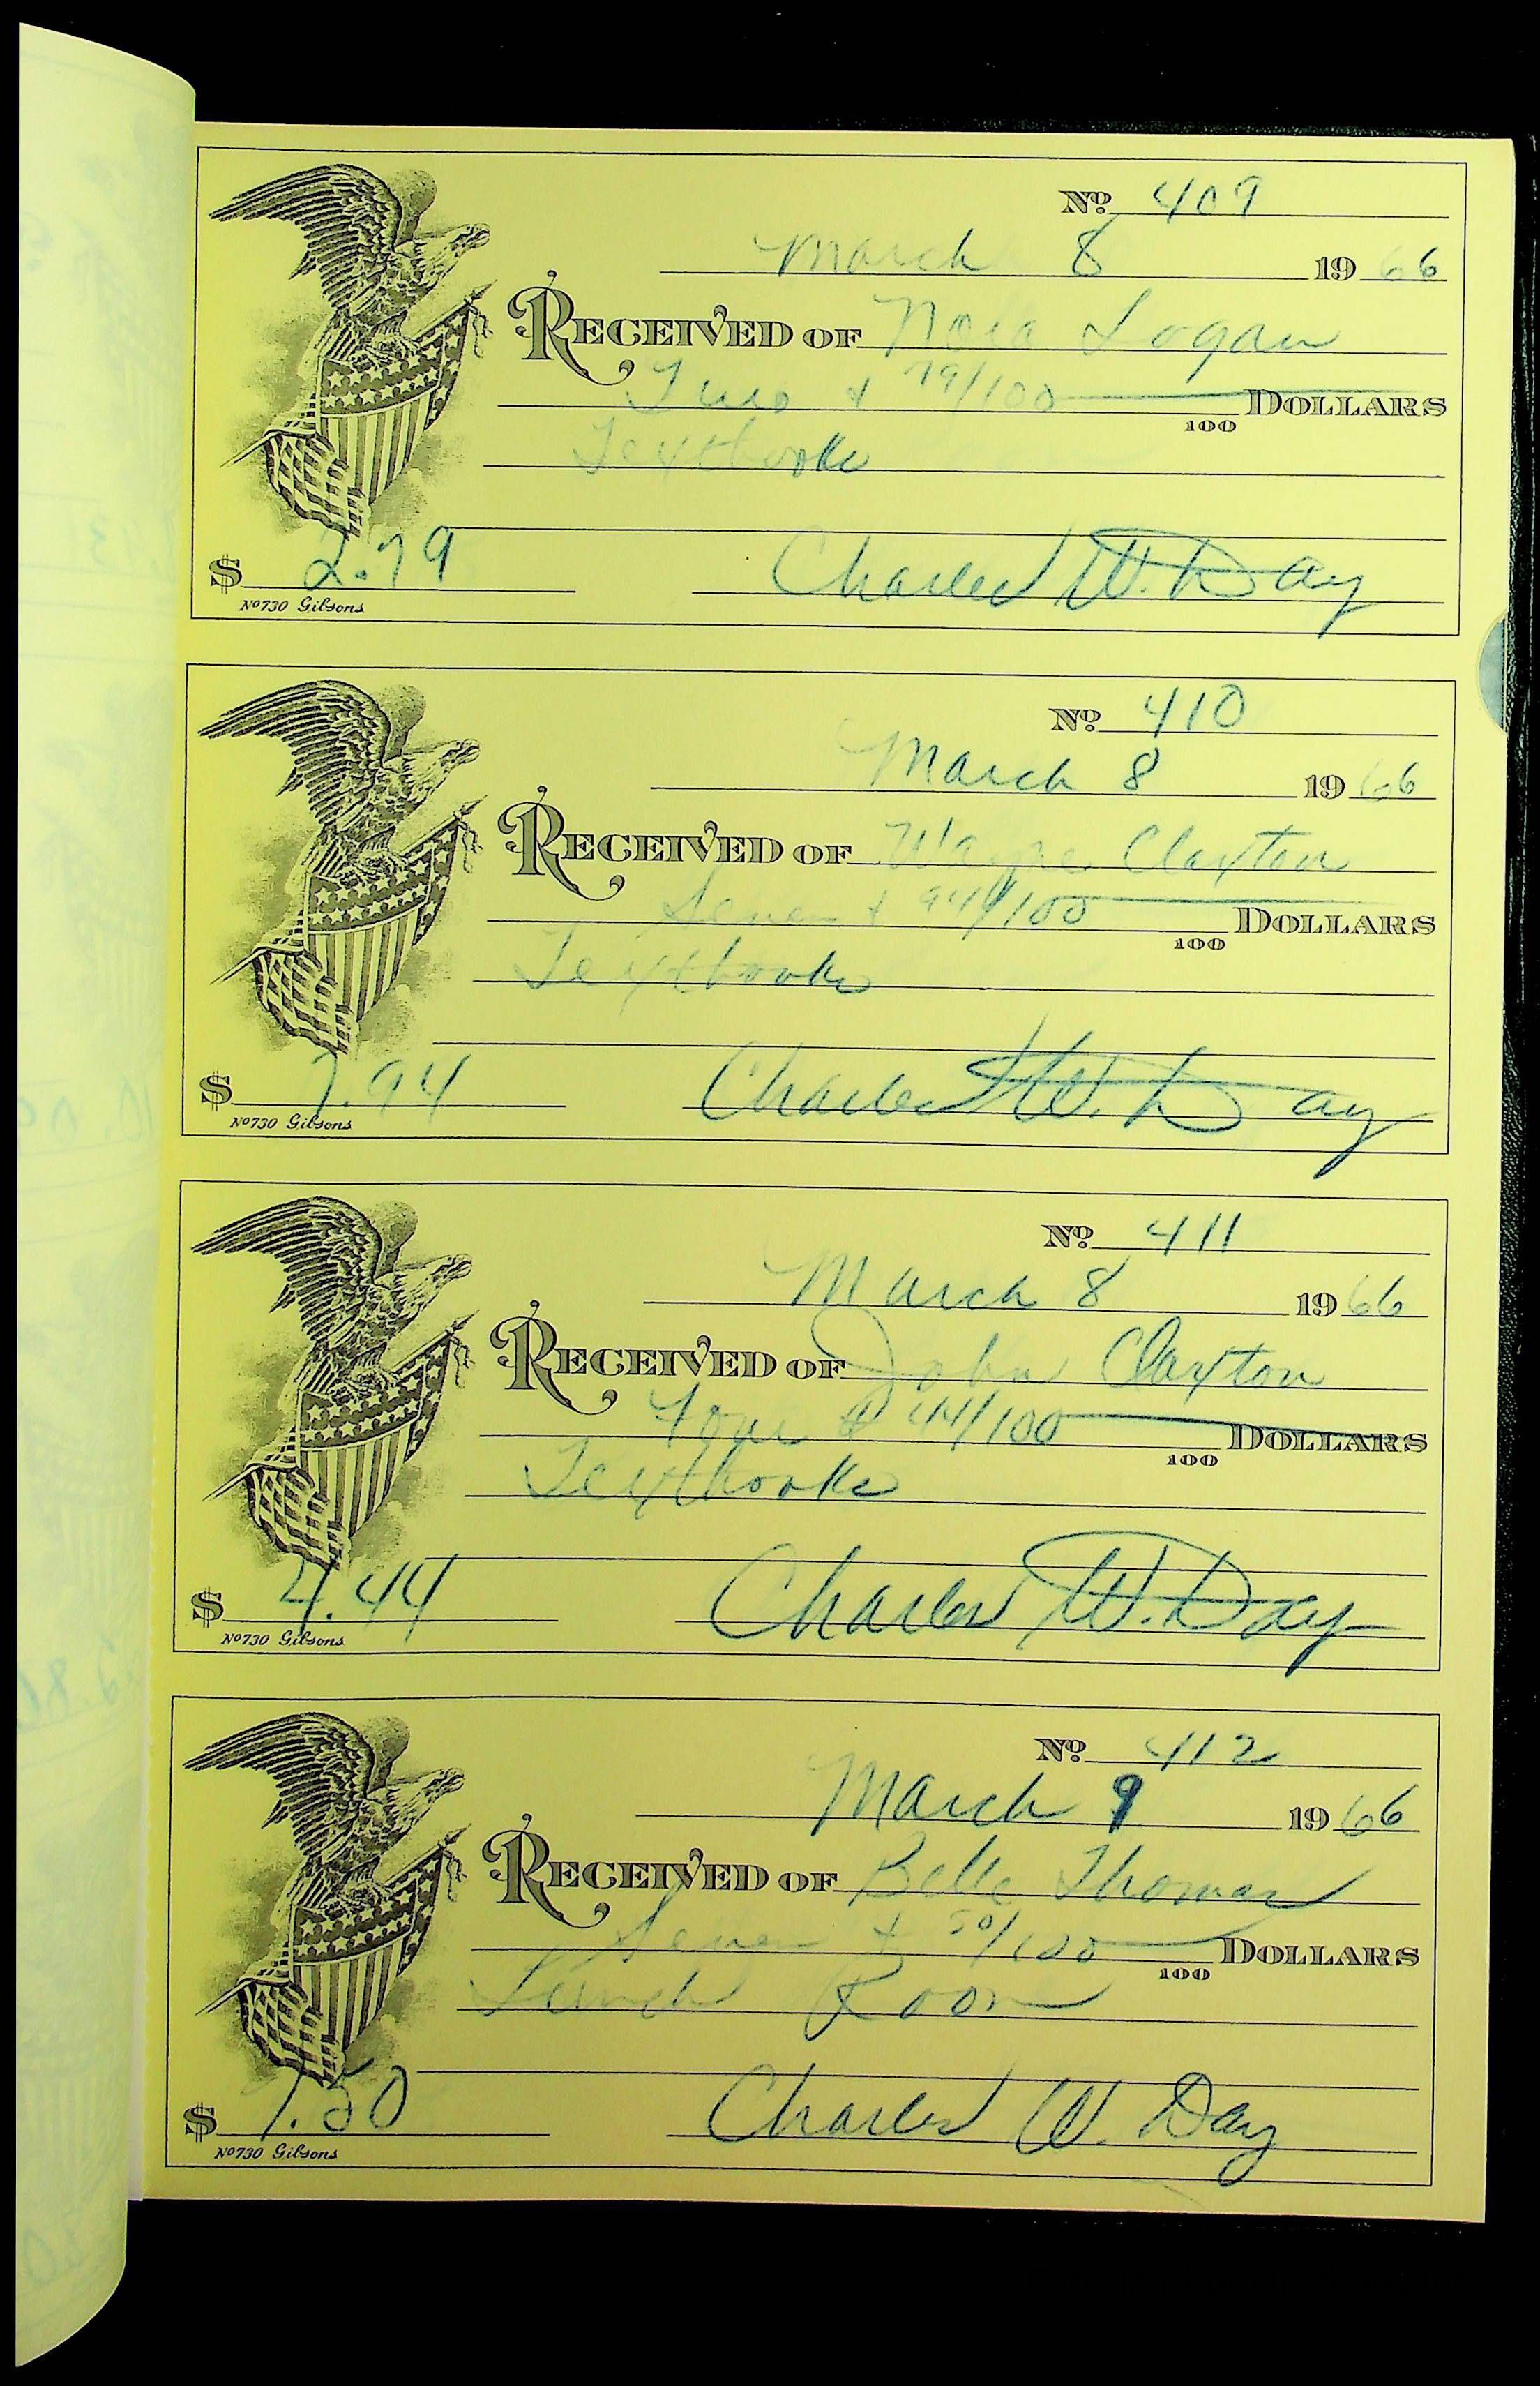 Nº 409
March 8 1966
RECEIVED OF Nora Logan
Two & 79/100 DOLLARS
100
Textbooks
$ 2.79 Charles W. Day
Nº730 Gibsons
Nº 410
March 8 1966
RECEIVED OF Wayne Claxton
Seven & 94/100 DOLLARS
100
Textbooks
$ 7.94 Charles W. Day
Nº730 Gibsons
Nº 411
March 8 1966
RECEIVED OF John Claxton
Four & 44/100 DOLLARS
100
Textbooks
$ 4.44 Charles W. Day
Nº730 Gibsons
Nº 412
March 9 1966
RECEIVED OF Belle Thomas
Seven & 50/100 DOLLARS
100
Lunch Room
$ 7.50 Charles W. Day
Nº730 Gibsons